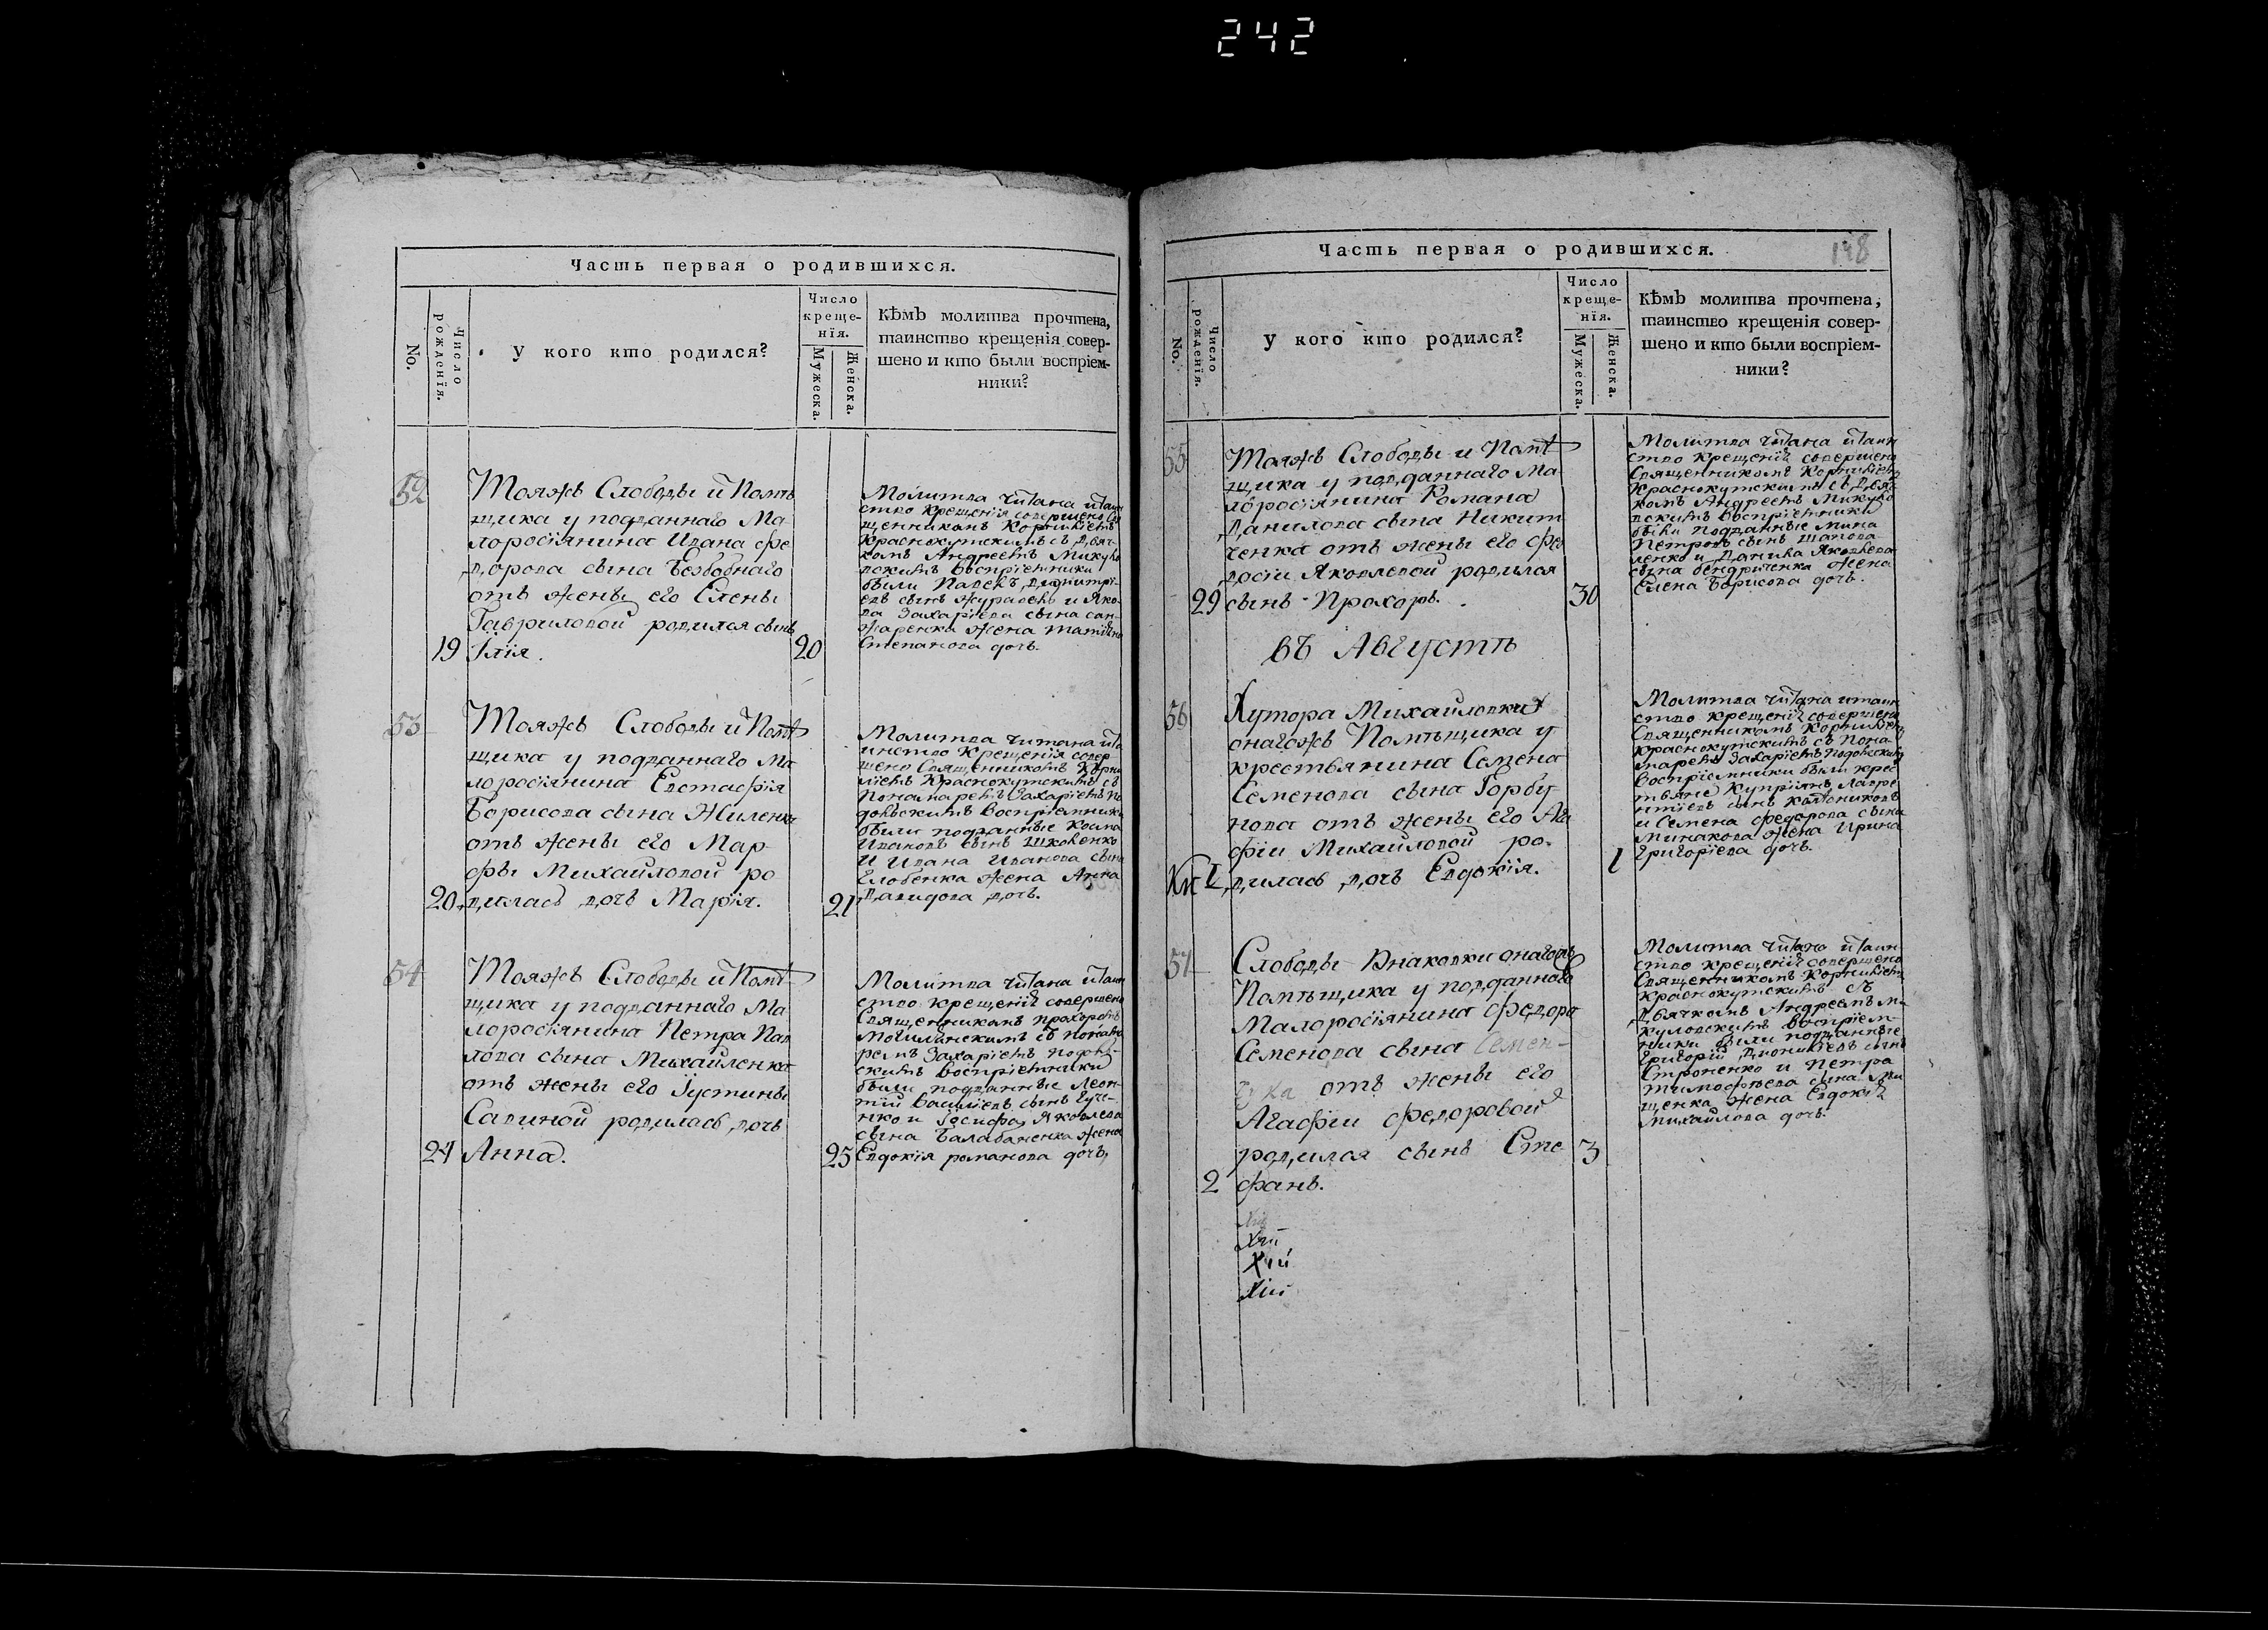 242
Часть первая о родившихся.
No.
Число рожденїя.
У кого кто родился?
Число
креще-
нїя.
Мужеска.
Женска.
Кѣмъ молитва прочтена,
таинство крещенїя совер-
шено и кто были воспрїем-
ники?
52
Тояжъ Слободы и Помѣ
щика у подданнаго Ма
лоросїянина Ивана Фе
дорова сына Беззобнаго
отъ жены его Елены
Гавриловой родился сынъ
19 Илїя.
20
Молитва читана и таин
ство крещенїя совершено Свя
щенникомъ Корнилїемъ
Краснокутскимъ съ Дьяч
комъ Андреемъ Микуло
вскимъ воспрїемники
были Павелъ Димитрї-
евъ сынъ Журавель и Яко-
ва Захарїева сына сан-
жаренка жена татїяна
Степанова дочь.
53
Тояжъ Слободы и Помѣ
щика у подданнаго Ма
лоросїянина Евстафїя
Борисова сына Жиленка
отъ жены его Мар-
фы Михайловой ро
20 дилась дочь Марїя.
21
Молитва читана и та
инство крещенїя совер
шено Священникомъ Корни
лїемъ Краснокутскимъ съ
Понамаремъ Захарїемъ По
дольскимъ Воспрїемники
были подданные Косма
Ивановъ сынъ Шковенко
и Ивана Иванова сына
Глобенка жена Анна
Давидова дочь.
54
Тояжъ Слободы и Помѣ
щика у подданнаго Ма
лоросїянина Петра Пав
лова сына Михайленка
отъ жены его Iустины
Савиной родилась дочь
24 Анна.
25
Молитва читана и таин
ство крещенїя совершено
Священникомъ Прохоромъ
Могилянскимъ съ понама
ремъ Захарїемъ подоль-
скимъ воспрїемники
были подданные Леон
тїй Василїевъ сынъ Гуче-
нко и Iосифа Яковлева
сына Балабаненка жена
Евдокїя романова дочь,
Часть первая о родившихся.
148
No.
Число рожденїя.
У кого кто родился?
Число
креще-
нїя.
Мужеска.
Женска.
Кѣмъ молитва прочтена,
таинство крещенїя совер-
шено и кто были воспрїем-
ники?
55
Тояжъ Слободы и Помѣ
щика у подданнаго Ма
лоросїянина Романа
Данилова сына Никит
ченка отъ жены его Фео
досїи Яковлевой родился
29 сынъ Прохоръ.
30
Молитва читана и таин
ство крещенїя совершено
Священникомъ Корнилїемъ
Краснокутскимъ съ Дьяч
комъ Андреемъ Микуло
вскимъ Воспрїемники
были подданные Мина
Петровъ сынъ Шапова
ленко и Данила Яковлева
сына бендриченка жена
Елена Борисова дочь.
въ Августѣ
56
Хутора Михайловки
онагожъ Помѣщика у
крестьянина Семена
Семенова сына Горбу-
нова отъ жены его Ага
фїи Михайловой ро-
1 дилась дочь Евдокїя.
1
Молитва читана и таин
ство крещенїя совершено
Священникомъ Корнилїемъ
Краснокутскимъ съ Пона
маремъ Захарїемъ Подольскимъ
Воспрїемники были крес
тьяне Купрїянъ Лавре
нтїевъ сынъ
и Семена Федорова сына
Минакова жена Ирина
Григорїева дочь.
57
Слободы Знаковки онагожъ
Помѣщика у подданнаго
Малоросїянина Федора
Семенова сына Семен-
чука отъ жены его
Агафїи Федоровой
родился сынъ Сте
2 фанъ.
3
Молитва читана и таин
ство крещенїя совершено
Священникомъ Корнилїемъ
Краснокутскимъ съ
Дьячкомъ Андреемъ Ми
куловскимъ Воспрїем-
ники были подданные
Григорїй Дионисїевъ сынъ
Строченко и Петра
тимофѣева сына Ми
щенка жена Евдокїя
Михайлова дочь.